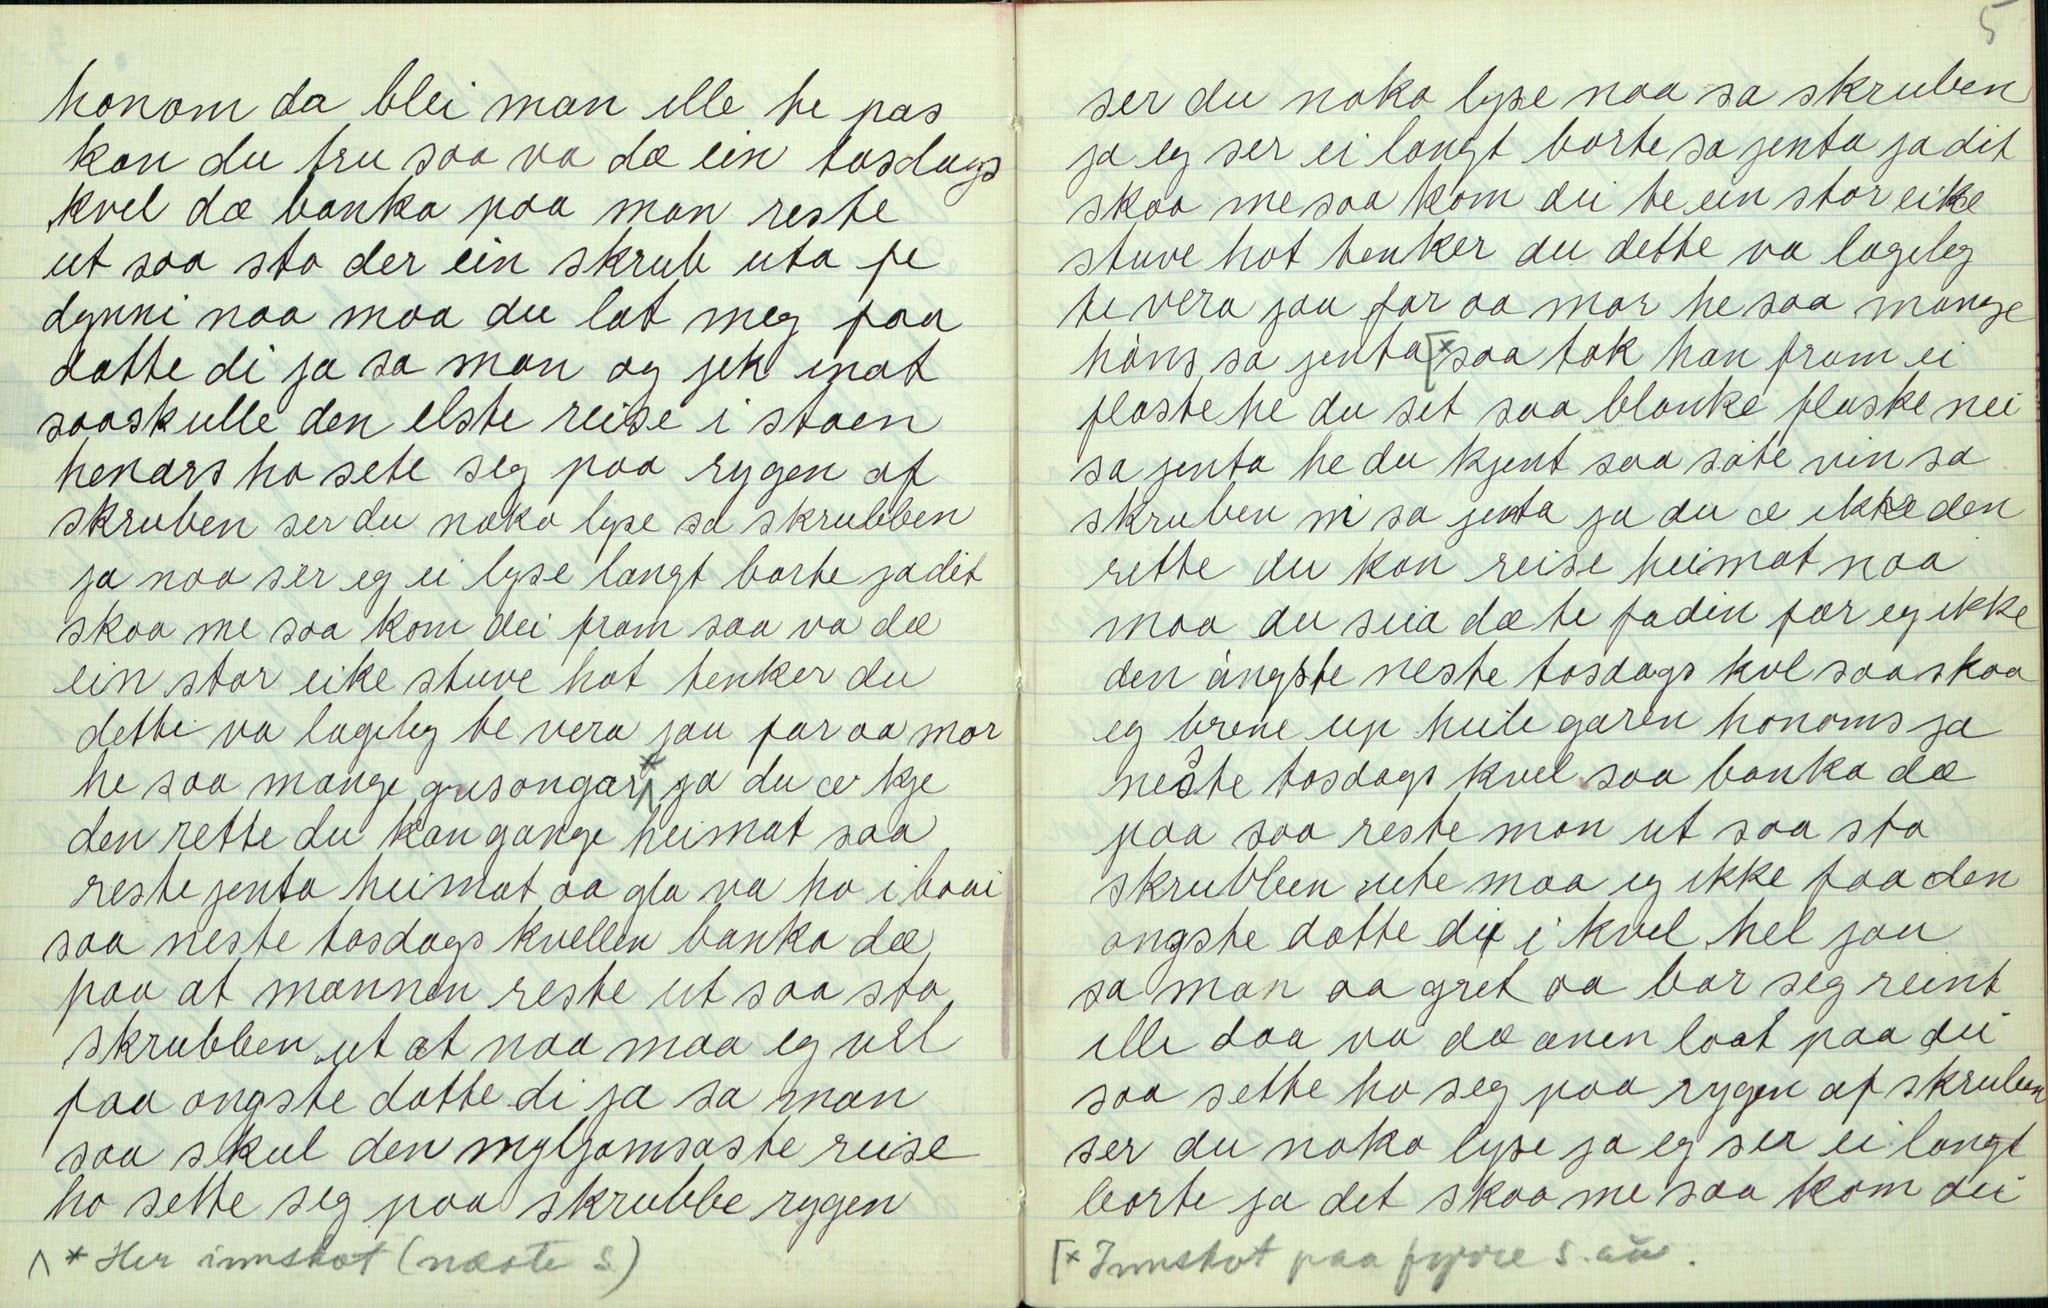 honom da blei man ille te pas
kan du tru saa va dæ ein tosdags
kvel dæ banka paa man reste
ut saa sto der ein skrub uta fe
dynni naa maa du lat meg faa
dotte di ja sa man og jek inat
saa skulle den elste reise i staen
henars ho sete seg paa rygen af
skruben ser du noko lyse sa skrubben
ja naa ser eg ei lyse langt borte ja dit
skaa me saa kom dei fram saa va dæ
ein stor eike stuve hot tenker du
dette va lageleg te vera jau far aa mor
he saa mange grisongar ja du æ kje
den rette du kan gange heimat saa
reste jenta heimat aa gla va ho i baai
saa neste tosdags kvellen banka dæ
paa at mannen reste ut saa sto
skrubben ut at naa maa eg vel
faa ongste dotte di ja sa man
saa skul den myljomsaste reise
ho sette seg paa skrubbe rygen
^ * Her innskot (næste S)
5
ser du noko lyse naa sa skruben
ja eg ser ei langt borte sa jenta ja dit
skaa me saa kom dei te ein stor eike
stuve hot tenker du dette va lageleg
te vera jau far aa mor he saa mange
høns sa jenta [* saa tok han fram ei
flaste he du set saa blanke flaske nei
sa jenta he du kjent saa søte vin sa
skruben ni sa jenta ja du æ ikke den
rette du kan reise heimat naa
maa du seia dæ te fadin fær eg ikke
den ångste neste tosdags kvel saa skaa
eg brene up heile garen honoms ja
neste tosdags kvel saa banka dæ
paa saa reste man ut saa sto
skrubben ute maa eg ikke faa den
ongste dotte di i kvel hel jau
sa man aa gret aa bar seg reint
ille daa va dæ anen laat paa dei
saa sette ho seg paa rygen af skruben
ser du noko lyse ja eg ser ei langt
borte ja det skaa me saa kom dei
[* Innskot paa fyrre S.